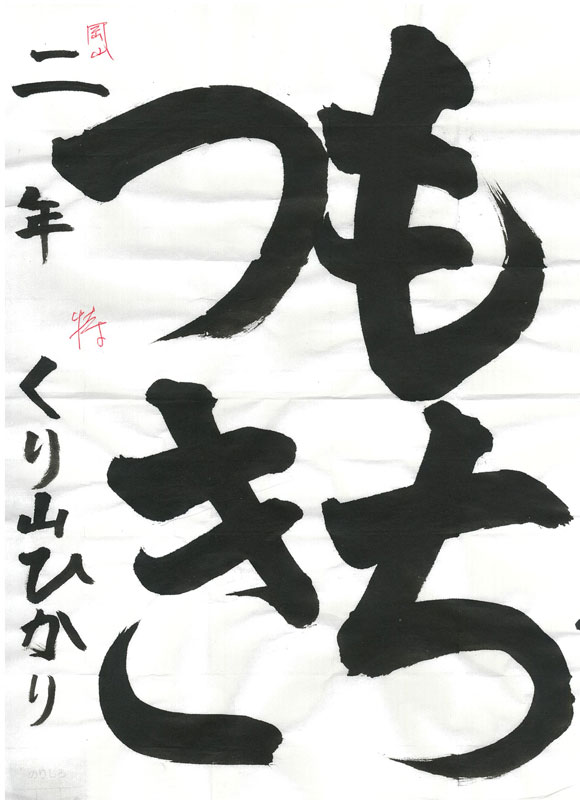 もち
つき
二年 くり山ひかり
岡山
特
のりしろ